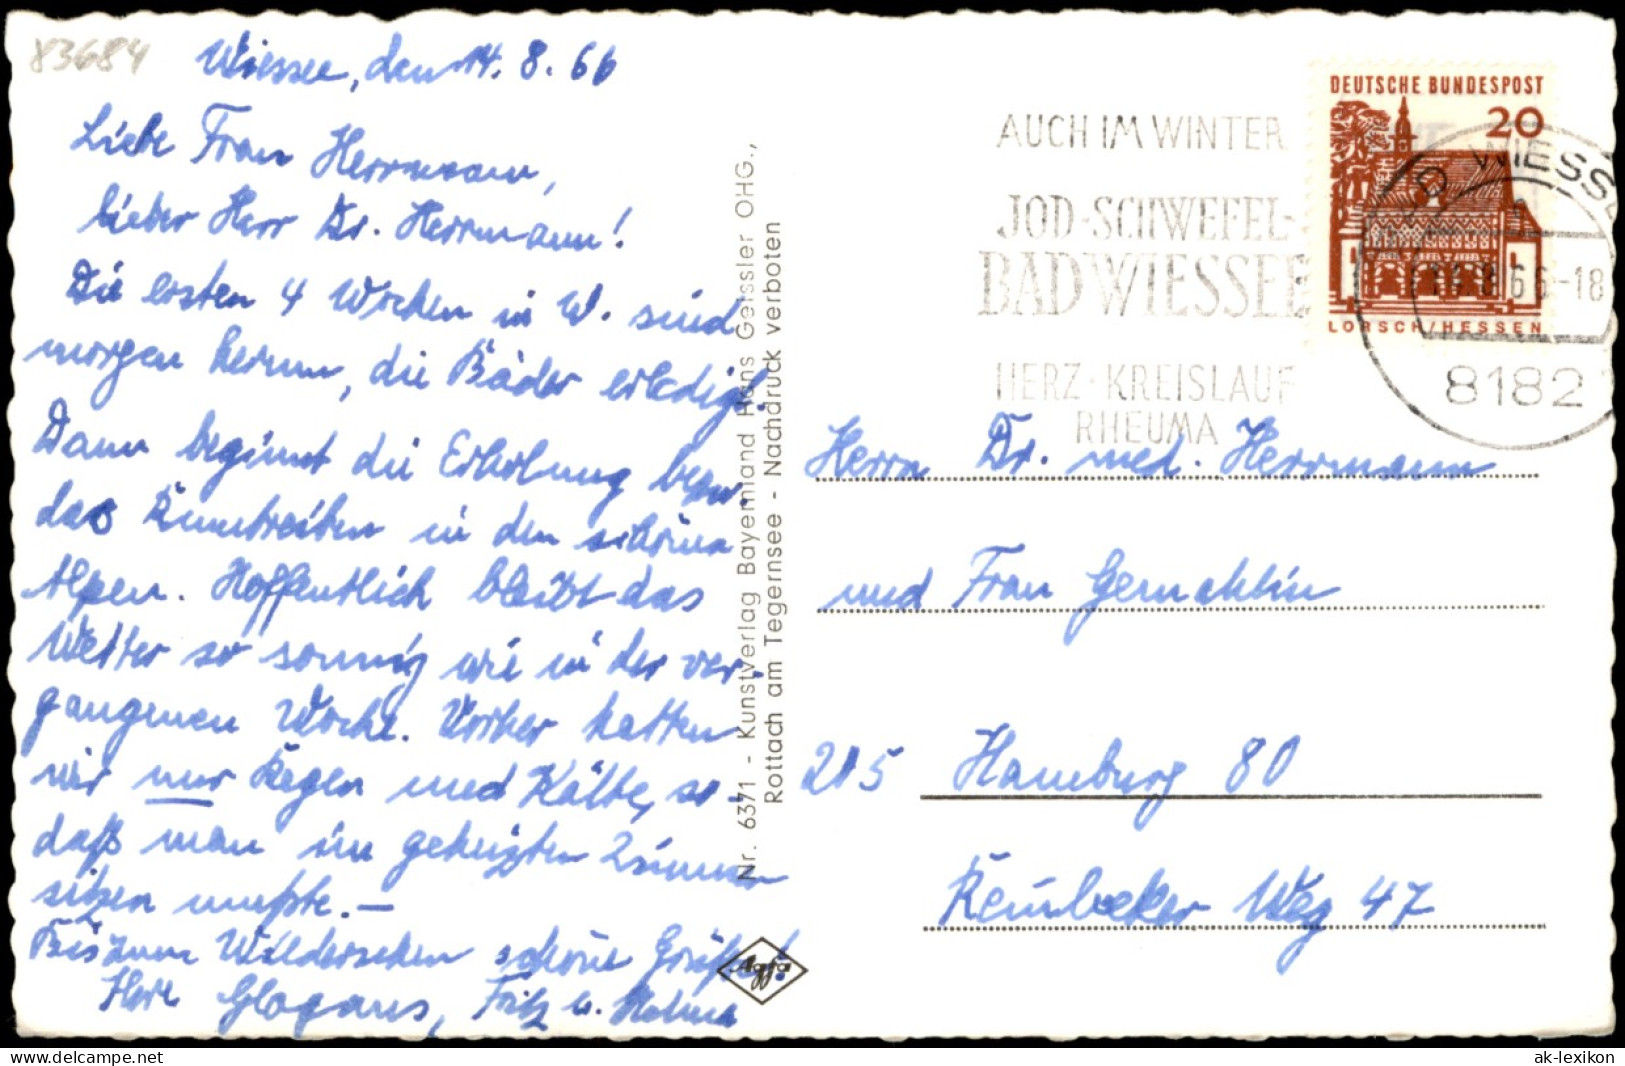 83684
Wiessee, den 14. 8. 66
Liebe Frau Herrmann,
lieber Herr Dr. Herrmann!
Die ersten 4 Wochen in W. sind
morgen herum, die Bäder erledigt.
Dann beginnt die Erholung bezw.
das Rumtreiben in den schönen
Alpen. Hoffentlich bleibt das
Wetter so sonnig wie in der ver-
gangenen Woche. Vorher hatten
wir nur Regen und Kälte, so-
daß man im geheizten Zimmer
sitzen mußte. —
Bis zum Wiedersehen schöne Grüße!
Ihre Glogaus, Fritz u.
Nr. 6371 - Kunstverlag Bayernland Hans Geissler OHG.,
Rottach am Tegernsee - Nachdruck verboten
Agfa
AUCH IM WINTER
JOD-SCHWEFEL-
BAD WIESSEE
HERZ-KREISLAUF
RHEUMA
DEUTSCHE BUNDESPOST
20
LORSCH/HESSEN
BAD WIESSEE
14.8.66-18
8182
Herrn Dr. med. Herrmann
und Frau Gemahlin
205 Hamburg 80
Reinbeker Weg 47
www.delcampe.net
ak-lexikon